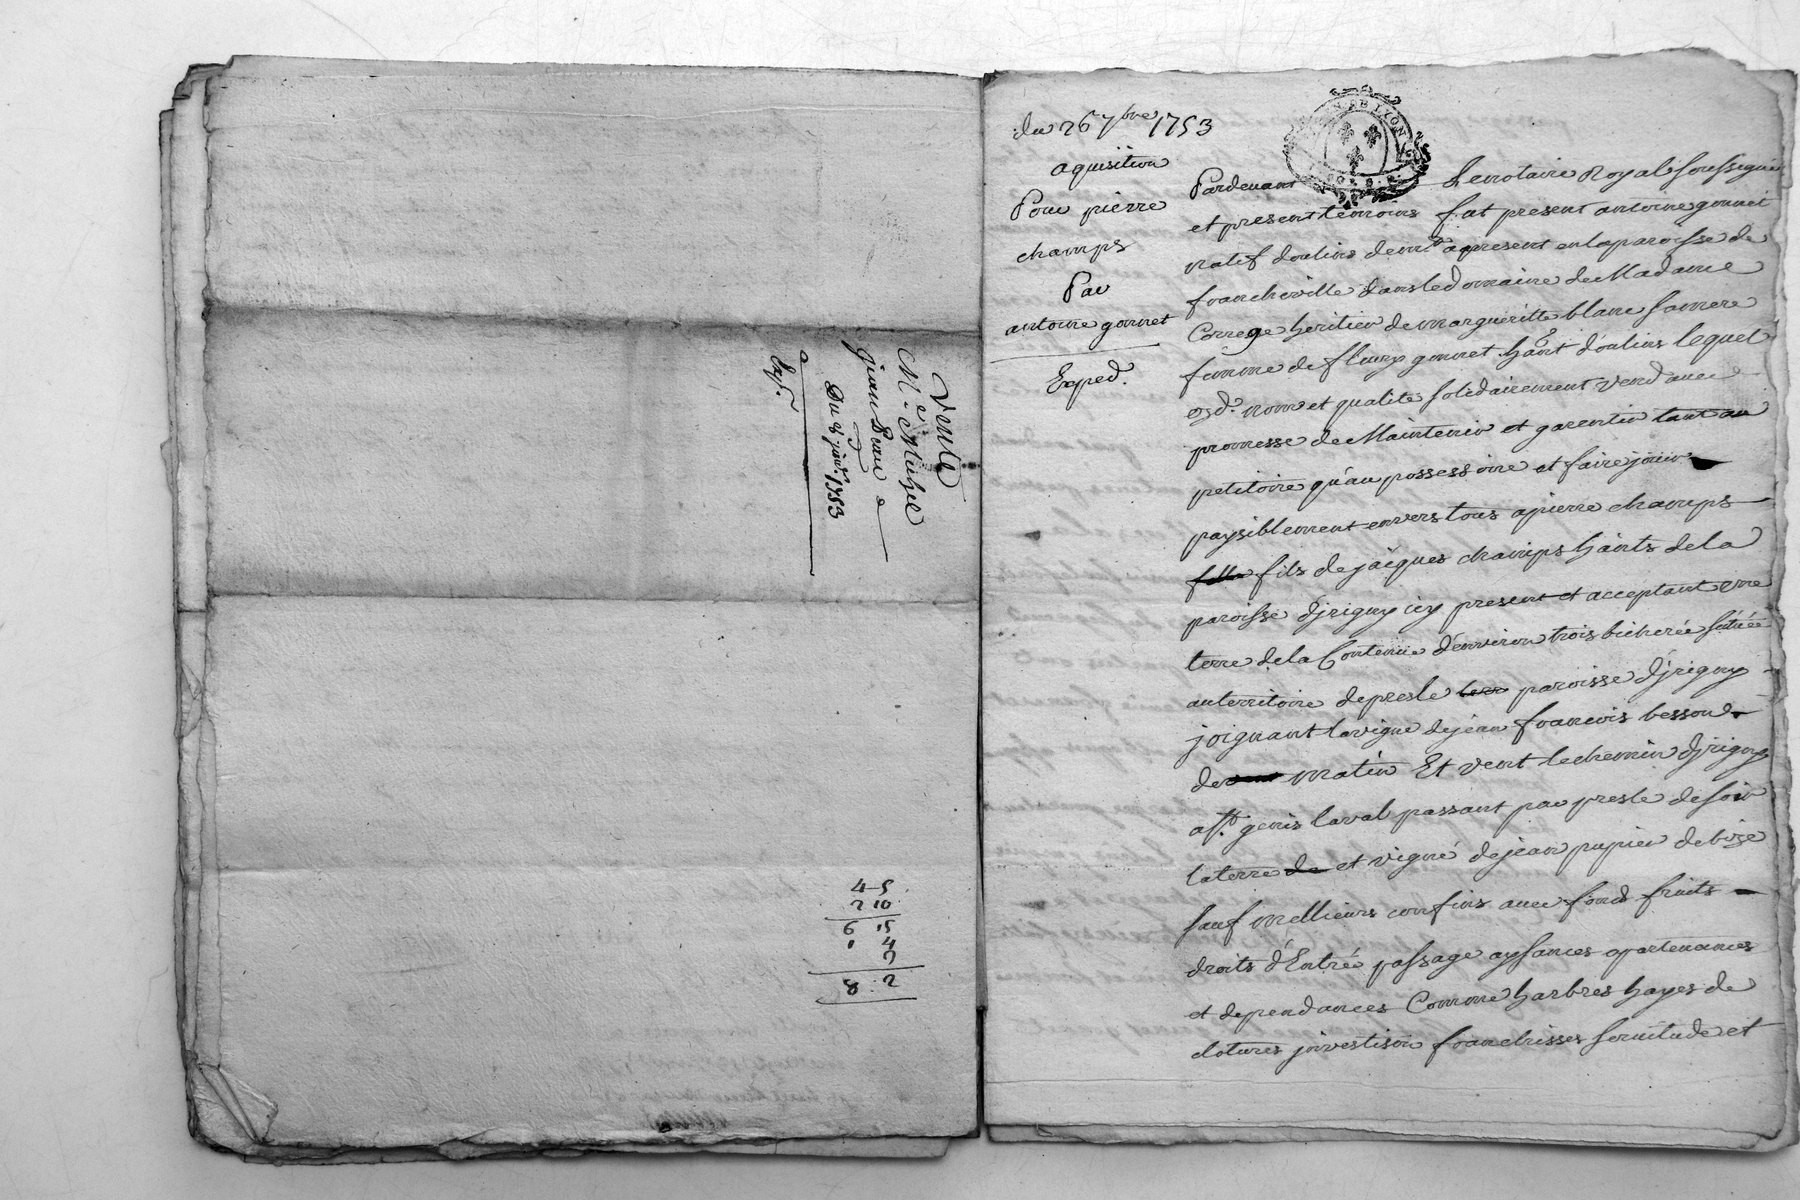 Vente
Me Michel
jean Peau
Du 2 janv. 1753
45
2 10
6 15
1 4
8 2
du 26 7bre 1753
aquisition
Pour pierre
champs
Par
antoine gonnet
Exped.
Pardevant Le notaire Royal soussigné
et present temoins fut present antoine gonnet
natif doulins demt apresent en la paroisse de
francheville dans le domaine de Madame
Correge heritier de margueritte blanc sa mere
femme de fleury gonnet hant d'oulins lequel
esd. nom et qualité solidairement vend avec
promesse de Maintenir et garentir tant au
petitoire qu'au possessoire et faire jouir
paysiblement envers tous a pierre champs
fils de jacques champs hants de la
paroisse d'jrigny icy present et acceptant une
terre de la Contenue d'environ trois bicherée scituée
au territoire de presle paroisse d'jrigny
joignant la vigne de jean francois besson
de matin Et vent le chemin d'jrigny
a st. genis laval passant par presle de soir
la terre de et vigne de jean papier de bize
sauf meillieurs confins avec fond fruits
droits d'Entrée passage aysances apartenances
et dependances Comme harbres hayes de
clotures jnvestison franchisses servitude et